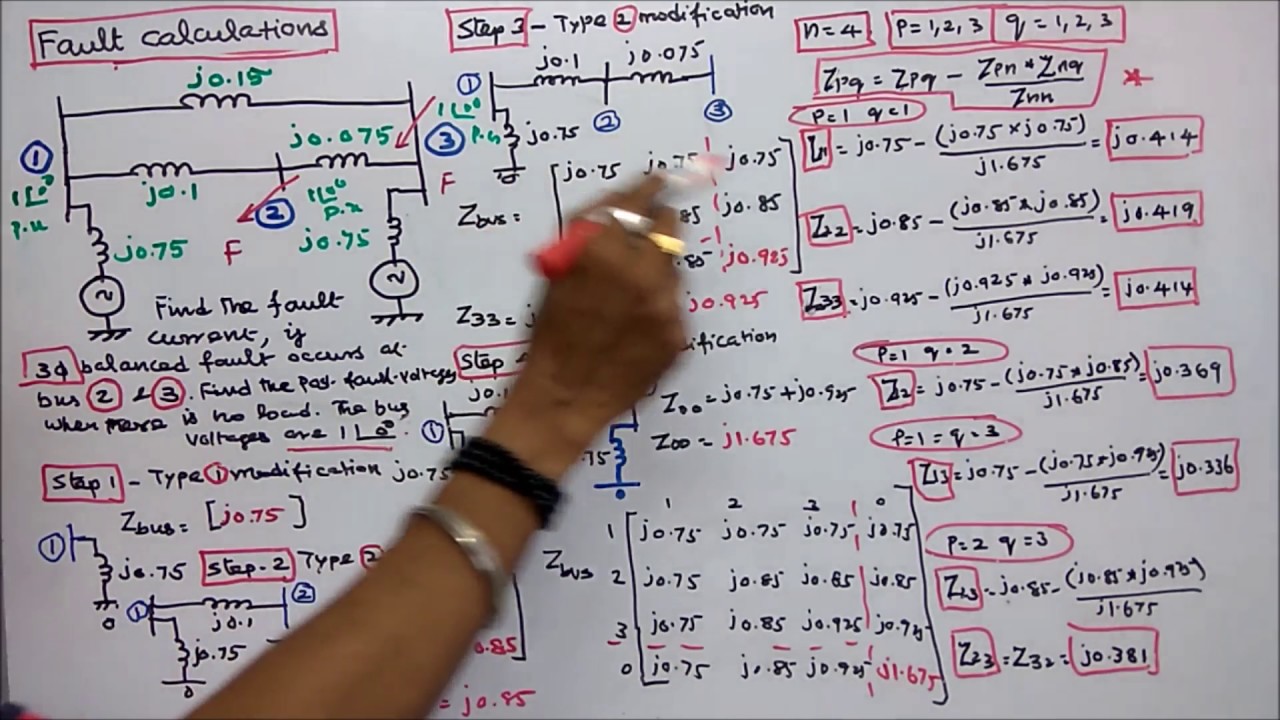 Fault calculations
j0.15
j0.075
1
3
1∠0°
P.u
j0.1
1∠0°
P.u
2
1∠0°
P.u
F
F
j0.75
j0.75
Find the fault
current, if
3ϕ balanced fault occurs at
bus 2 & 3. Find the
when there is no load. The bus
voltages are 1∠0°.
Step 1 - Type 1 modification
Zbus = [j0.75]
1
j0.75
0
Step-2 Type 2
1
2
j0.1
j0.75
0
0.85
= j0.85
Step 3 - Type 2 modification
j0.1 j0.075
1
2
3
j0.75
0
Zbus =
j0.75 j0.75 j0.75
85 j0.85
j0.925
Z33 = j0.925
Step
modification
1
j0.75
0
Z00 = j0.75 + j0.925
Z00 = j1.675
Zbus
1 2 3 0
1 j0.75 j0.75 j0.75 j0.75
2 j0.75 j0.85 j0.85 j0.85
3 j0.75 j0.85 j0.925 j0.925
0 j0.75 j0.85 j0.925 j1.675
n=4 P=1,2,3 q=1,2,3
Zpq = Zpq - Zpn * Znq / Znn *
P=1 q=1
Z11 = j0.75 - (j0.75 x j0.75) / j1.675 = j0.414
Z22 = j0.85 - (j0.85 x j0.85) / j1.675 = j0.419
Z33 = j0.925 - (j0.925 x j0.925) / j1.675 = j0.414
P=1 q=2
Z12 = j0.75 - (j0.75 x j0.85) / j1.675 = j0.369
P=1 = q=3
Z13 = j0.75 - (j0.75 x j0.925) / j1.675 = j0.336
P=2 q=3
Z23 = j0.85 - (j0.85 x j0.925) / j1.675
Z23 = Z32 = j0.381